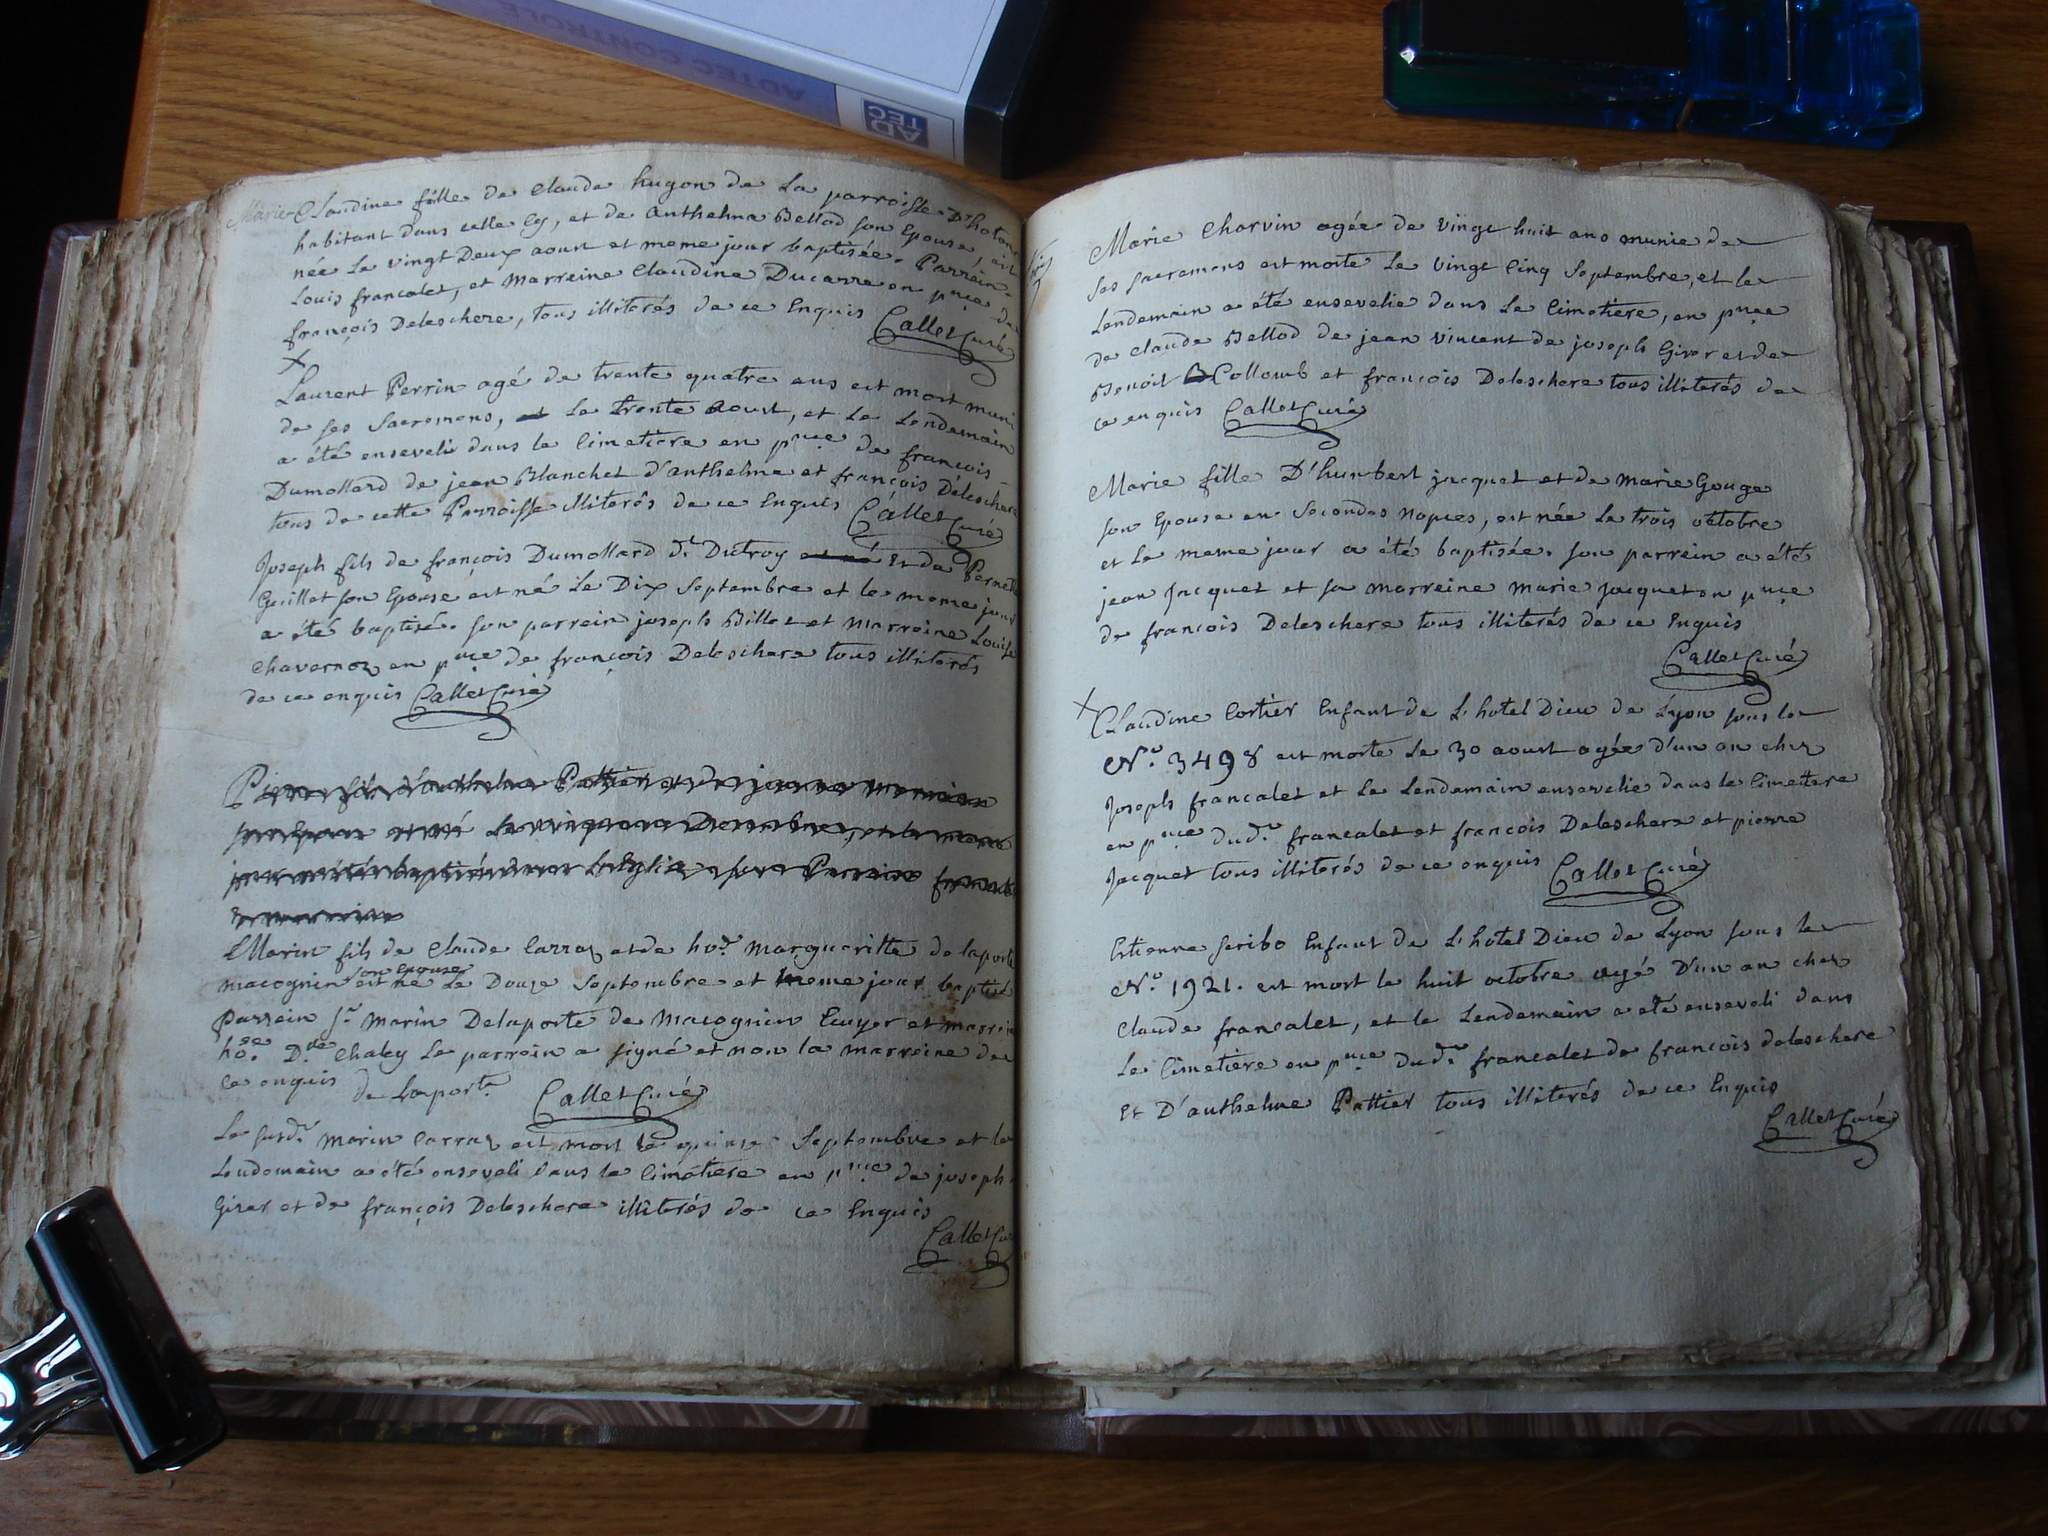 ADTEC CONTROLE
AD
TEC
Marie-Claudine fille de Claude hugon de La parroisse D'hoton
habitant dans celle Cy, et de Anthelma Bellod son Epouse, est
née Le vingt Deux aoust et meme jour baptisée. Parrein
Louis francalet, et Marreine Claudine Ducarre en pnce de
françois Deleschere, tous illiterés de ce Enquis Callet Curé
X
Laurent Perrin agé de trente quatre ans est mort muni
de ses Sacremens, Le trente Aoust, et Le Lendemain
a été enseveli dans le Cimetiere en pnce de françois
Dumollard de jean Blanchet d'anthelme et françois Deleschere
tous de cette Parroisse illiterés de ce Enquis Callet Curé
Joseph fils de françois Dumollard dt. Dutroy Et de Pernette
Guillet son Epouse est né Le Dix Septembre et le meme jour
a été baptisé. son parrein joseph Billet et Marreine Louise
Chavernoz en pnce de françois Deleschere tous illiterés
de ce enquis Callet Curé
Pierre fils d'anthelme Pattier et de jeanne
son Epouse est né Le vingt Decembre, et le meme
jour a été baptisé dans L'Eglise Parrein
marreine
Marin fils de Claude Carraz et de hoe. Margueritte de laporte
macognin son epouse est né Le Douze Septembre et meme jour baptisé
Parrein Sr. Marin Delaporte de Macognin Ecuyer et marreine
hoe. Dlle Chaley Le parrein a signé et non la marreine de
ce enquis de Laporte Callet Curé
Le susdt. Marin Carraz est mort le quinze Septembre et le
Lendemain a été enseveli dans le Cimetiere en pnce de joseph
Giver et de françois Deleschere illiterés de ce Enquis
Callet Cu
Marie Charvin agée de vingt huit ans munie de
ses sacremens est morte Le vingt Cinq Septembre, et le
Lendemain a été ensevelie dans Le Cimetiere, en pnce
de Claude Bellod de jean vincent de joseph Giver et de
Benoit Collomb et françois Deleschere tous illiterés de
ce enquis Callet Curé
Marie fille D'humbert jacquet et de Marie Gouge
son Epouse en Secondes Nopces, est née Le trois octobre
et Le meme jour a été baptisée. son parrein a été
jean Jacquet et sa marreine Marie Jacquet en pnce
de françois Deleschere tous illiterés de ce Enquis
Callet Curé
X
Claudine Cortier Enfant de L'hotel Dieu de Lyon sous le
No. 3498 est morte Le 30 aoust agée d'un an chez
Joseph francalet et Le Lendemain ensevelie dans le Cimetere
en pnce dudt. francalet et françois Deleschere et pierre
Jacquet tous illiterés de ce enquis Callet Curé
Etienne Scribo Enfant de L'hotel Dieu de Lyon sous le
No. 1921. est mort le huit octobre agé D'un an chez
Claude francalet, et le Lendemain a été enseveli dans
Le Cimetiere en pnce dudt. francalet de françois deleschere
Et D'anthelme Pattier tous illiterés de ce Enquis
Callet Curé